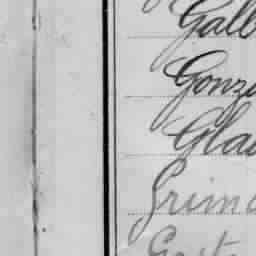 Gall
Gonz
Gla
Grim
Gast